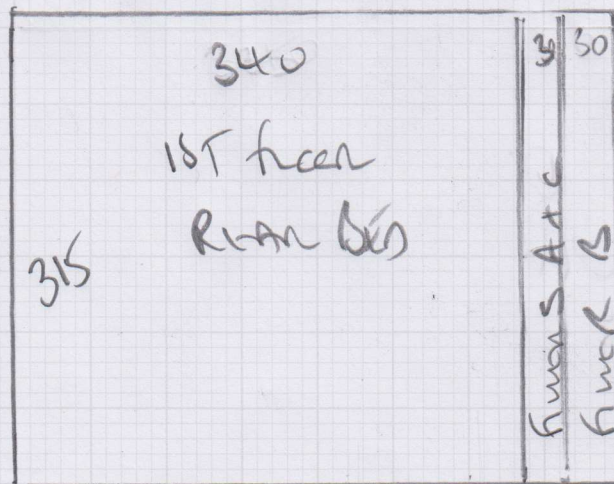 340
1ST floor
REAR BED
315
30
30
floors A + C
floor B